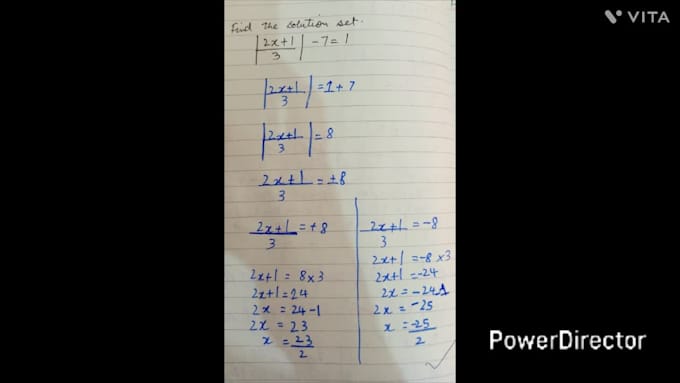 Find the solution set.
|2x+1/3| -7=1
|2x+1/3| =1+7
|2x+1/3| =8
2x+1/3 =±8
2x+1/3 =+8
2x+1 = 8×3
2x+1 = 24
2x = 24-1
2x = 23
x = 23/2
2x+1/3 =-8
2x+1 =-8×3
2x+1 =-24
2x =-24-1
2x = -25
x = -25/2
VITA
PowerDirector